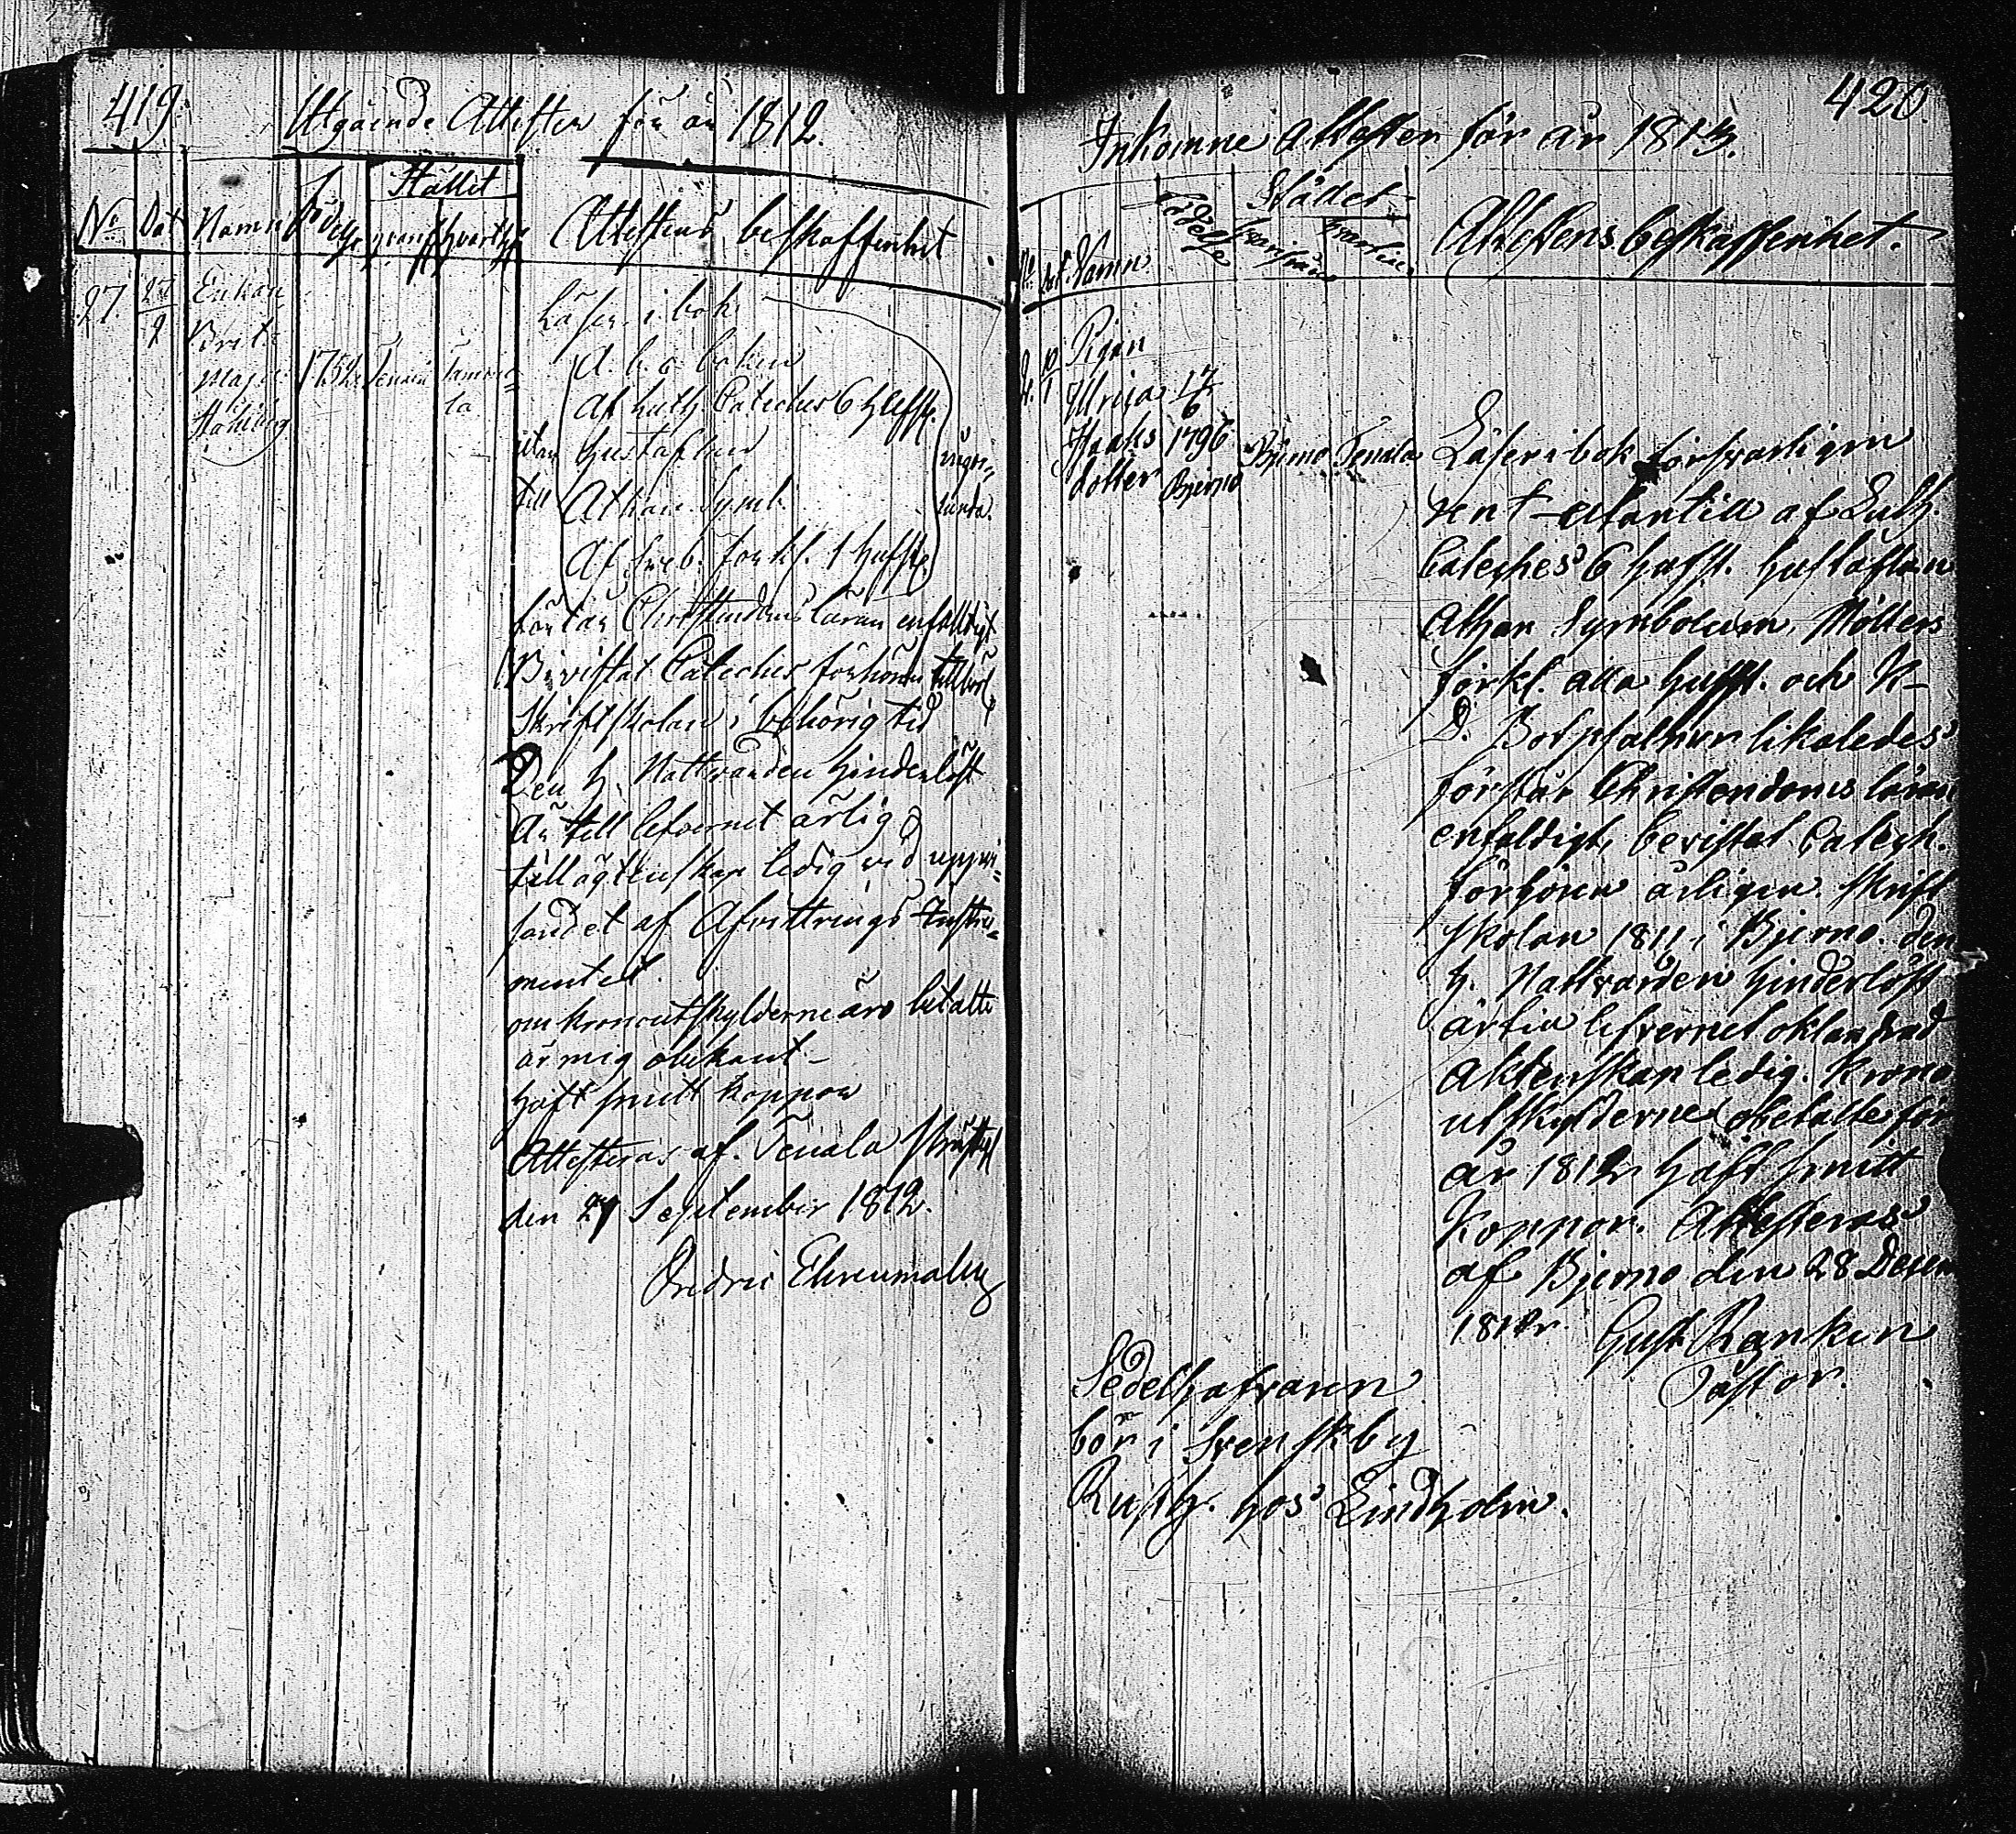 419.
Utgående Attester för år 1812.
No Dat Namn Födelse Stället
hvarifr hvart
Attestens beskaffenhet
27. 27/9 Enkan
Brita
Maja
Ståhlberg
1752. Tenala
Läser i bok
A. b. c. boken
af Luth. Cateches 6 Hufst.
utan
till
Hustaflan
Athan. Symb.
Af Sveb. förkl. 1 Hufst.
förstår Christendoms läran enfaldigt
Bevistat Catechis förhören
Skriftskolan i behörig tid
Den H. Nattvarden hinderlöst
Är till lefvernet ärlig
till ägtenskap ledig vid uppvi=
sandet af Afvittrings Instru=
mentet.
om kronoutskylderne äro betalte
är mig obekant –
haft smitt koppor
Attesteras af Tenala
den 27 September 1812.
Ehrenmalm
420.
Inkomne attester för år 1813.
No Dat. Namn Födelse Stället
hvarifrån hvartil
Attestens beskaffenhet.
Pigan
Ulrica
Isaks
dotter
17/6
1796
Bjerno
Bjerno Tenala
Läser i bok försvarligen
rent utantill af Luth.
Cateches 6 hufst. hustaflan
Athan Symbolum, Möllers
förkl. alla hufst. och K-
D. Botpsalmer likaledes
förstår Christendoms läran
enfaldigt, bevistat Catech.
förhören årligen. Skrift
skolan 1811 i Bjerno. den
H. Nattvarden hinderlöst
är till lefvernet oklandrad
Äktenskap ledig. Krono
utskylderne obetalte för
år 1812 haft smitt
Koppor. Attesteras
af Bjerno den 28 Decem
1812. Gust. Ranken
Pastor.
Sedelhafvaren
bör i Svenskby
Rusth. hos Lindholm.